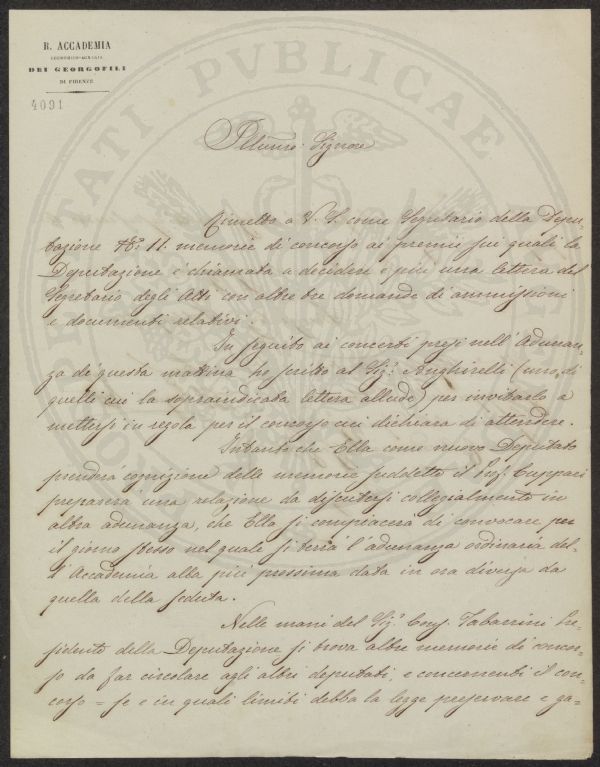 R. ACCADEMIA
ECONOMICO-AGRARIA
DEI GEORGOFILI
DI FIRENZE
4091
PROSPERITATI PUBLICAE
Illmo Signore
Rimetto a V. S. come Segretario della Depu-
tazione N.º 11. memorie di concorso ai premii sui quali la
Deputazione è chiamata a decidere e più una lettera del
Segretario degli Atti con altre tre domande di ammissioni
e documenti relativi.
In seguito ai concerti presi nell'Adunan-
za di questa mattina ho scritto al Sig.r Anghirelli (uno di
quelli cui la sopraindicata lettera allude) per invitarlo a
mettersi in regola per il concorso cui dichiara di attendere.
Intanto che Ella come nuovo Deputato
prenderà cognizione delle memorie suddette il Prof. Cuppari
preparerà una relazione da discutersi collegialmente in
altra adunanza, che Ella si compiacerà di convocare per
il giorno stesso nel quale si terrà l'adunanza ordinaria del-
l'Accademia alla più prossima data in ora diversa da
quella della seduta.
Nelle mani del Sig.r Cons. Tabarrini Pre-
sidente della Deputazione si trova altre memorie di concor-
so da far circolare agli altri deputati, e concernenti il con-
corso = se e in quali limiti debba la legge preservare e ga-